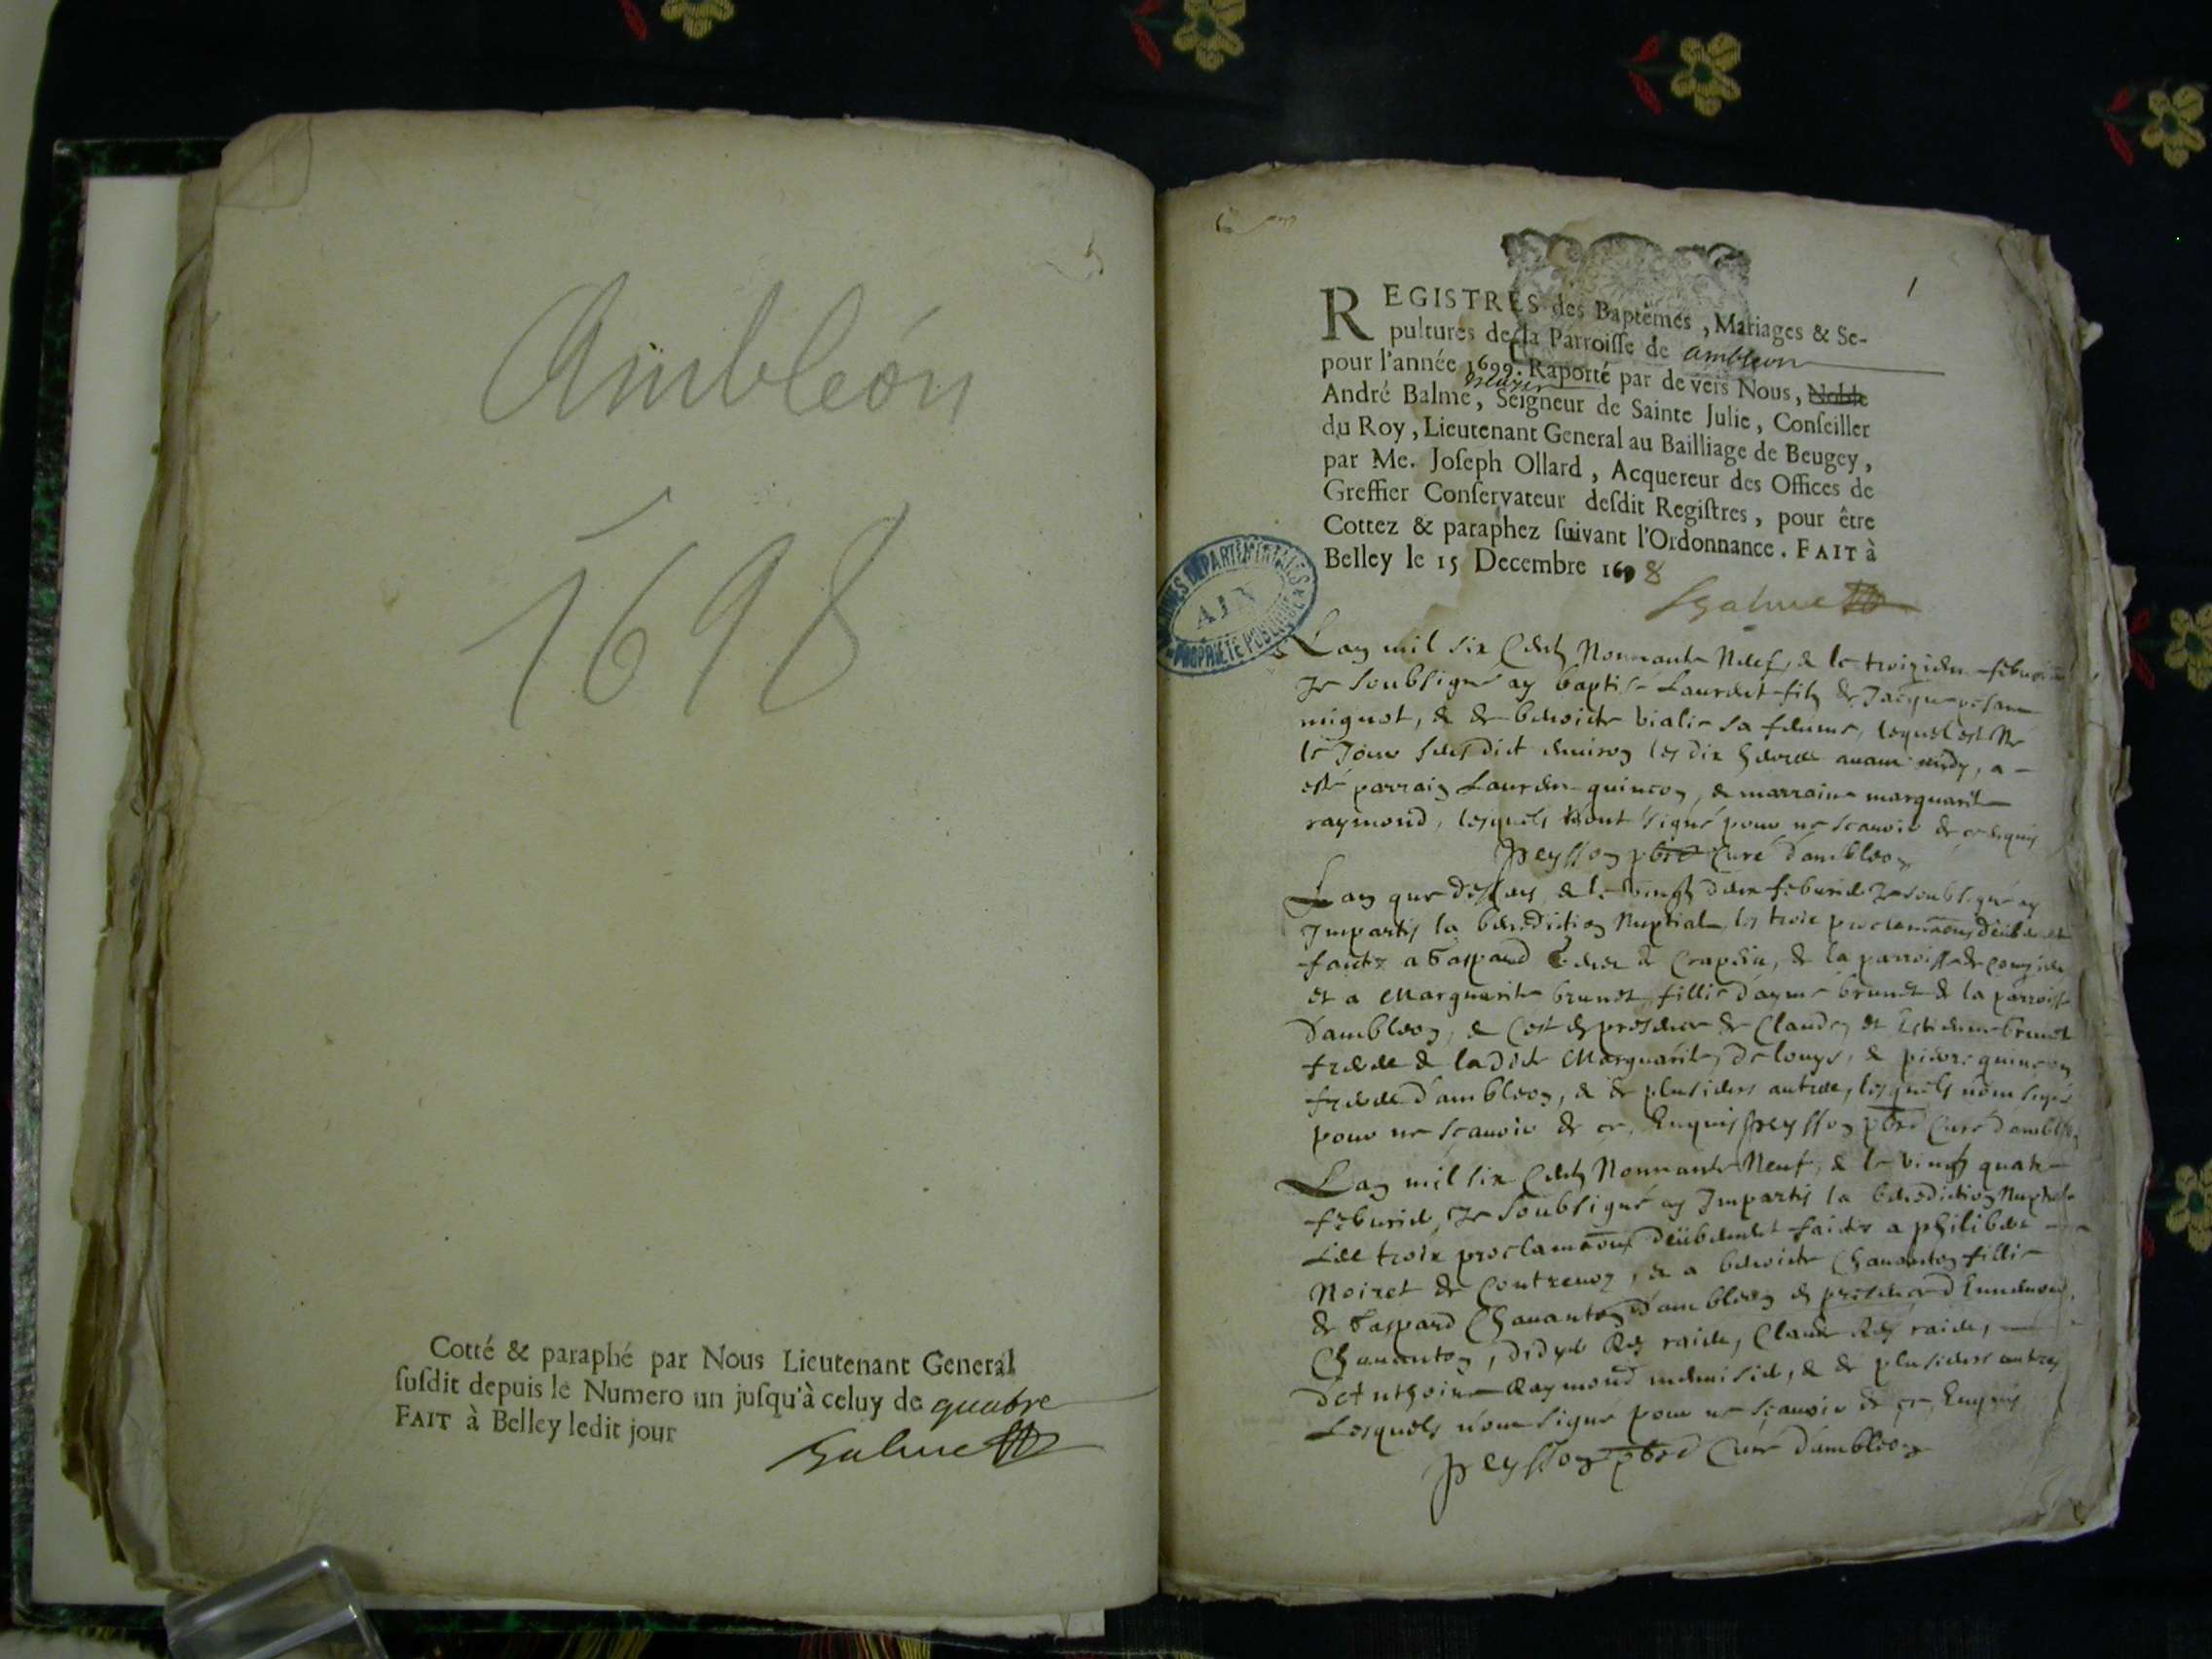 Ambléon
1698
Cotté & paraphé par Nous Lieutenant General
susdit depuis le Numero un jusqu'à celuy de quatre
FAIT à Belley ledit jour
Balme
1
REGISTRES des Baptêmes, Mariages & Se-
pultures de la Parroisse de ambleon
pour l'année 1699. Raporté par devers Nous, Noble
André Balme, Seigneur de Sainte Julie, Conseiller
du Roy, Lieutenant General au Bailliage de Beugey,
par Me. Joseph Ollard, Acquereur des Offices de
Greffier Conservateur desdit Registres, pour être
Cottez & paraphez suivant l'Ordonnance. FAIT à
Belley le 15 Decembre 1698
Balme
ARCHIVES DÉPARTEMENTALES
AIN
PROPRIÉTÉ PUBLIQUE
Lan mil six Cents Nonnante Neuf, & le troizieme febvrier
Je soubsigné ay baptisé Laurent fils de Jacque
mignot, & de benoiste vialis sa femme, lequel est Né
le Jour susdict environ les dix heures avant midy, a
esté parrain Laurens quincon, & marraine marguerite
raymond, lesquels n'ont signé pour ne scavoir de ce enquis
Peysson pbre Curé d'ambleon
Lan que dessus, & le vingt deux febvrier Je soubsigné ay
Impartis la benediction Nuptiale, les trois proclamaons deubement
faictes a Gaspard de Crapieu, de la parroisse de
et a Marguerite brunet fillie d'ayme brunet de la parroisse
d'ambleon, & C'est en presence de Claude, et Estienne brunet
freres de ladicte Marguerite, de louys, & pierre quincon
freres d'ambleon, & de plusieurs autres, lesquels n'ont signé
pour ne sçavoir de ce Enquis Peysson pbre Curé d'ambleon
Lan mil six Cents Nonnante Neuf, & le vingt quatre
febvrier, Je soubsigné ay Impartis la benediction Nuptiale
Les trois proclamaons deübement faictes a philibert
Noiret de Contrevoz, & a benoiste Chavanton fillie
de Gaspard Chavanton d'ambleon en presence d'Ennemond
Chavanton, raide, Claude raide,
d'Anthoine Raymond & de plusieurs autres
Lesquels n'ont signé pour ne sçavoir de ce Enquis
Peysson pbre Curé d'ambleon